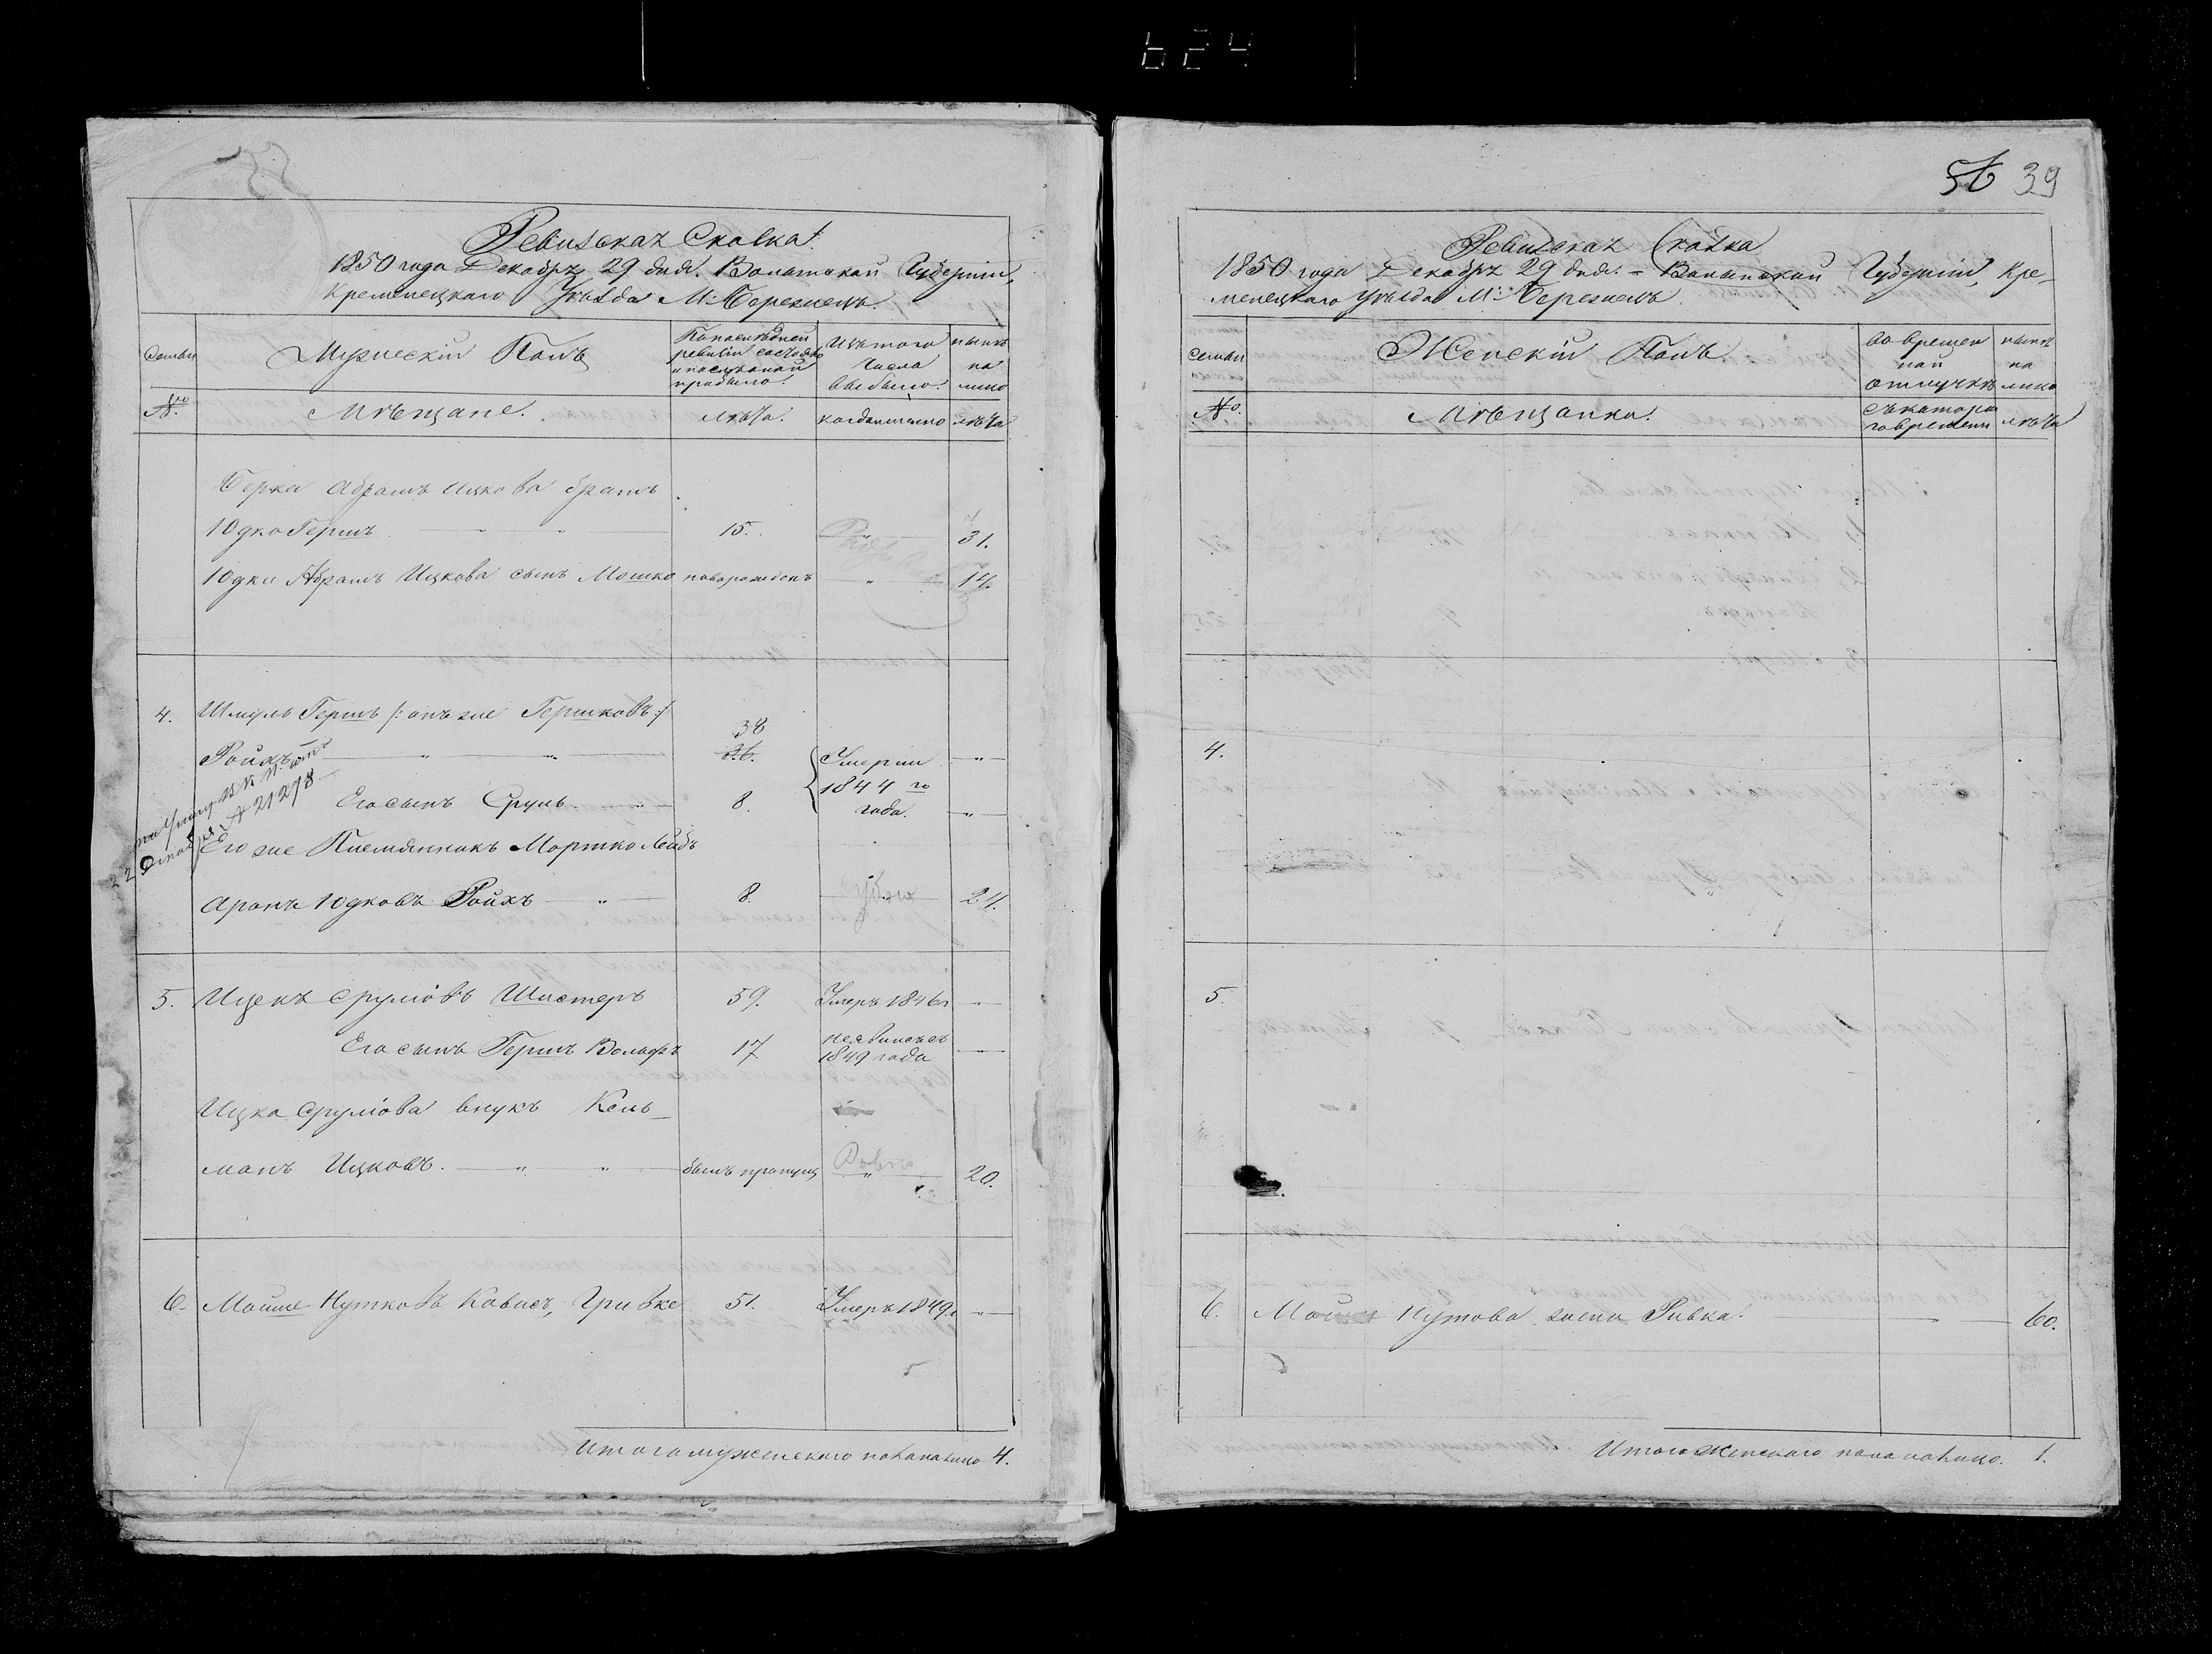 624
Ревизская Сказка
1850 года Декабря 29 дня. Волынской Губернии,
Кременецкаго Уезда М: Березнецъ
Семьи
Мужескій Полъ
По последней
ревизіи состояло
и после оной
прибыло.
Изъ того
числа
выбыло.
ныне
на
лицо
№
Мѣщане.
лѣта.
когда именно
лѣта
Берка Абрамъ Ицкова братъ
Юдко Гершъ 15. 31.
Юдки Абрамъ Ицкова сынъ Мошко новорожденъ 14.
4. Шмуль Гершъ /: онъ же Гершковъ :/
38
Ройхъ 26. Умерли
1844 го
Его сынъ Сруль 8. года.
22 Декабря № 21278
Его же Племянникъ Мортко Лейбъ
Аронъ Юдковъ Ройхъ 8. 24.
5. Ицекъ Сруліовъ Шистеръ 59. Умеръ 1846
Его сынъ Гершъ Вольфъ 17 неявился
1849 года
Ицка Сруліова внукъ Кель-
манъ Ицковъ. былъ пропущ Ровно 20.
6. Мойше Нутковъ Ковисъ, Гривке 51. Умеръ 1849
Итого мужескаго пола на лицо 4.
39
Ревизская Сказка
1850 года Декабря 29 дня. - Волынской Губерніи, Кре-
менецкаго Уезда М: Березнецъ
Семьи
Женскій Полъ.
во времен
ной
отлучке
ныне
на
лицо
№
Мѣщанки.
съ котора
го времени
лѣта
4.
5.
6. Мойше Нутова жена Ривка. 60.
Итого женскаго пола на лицо. 1.